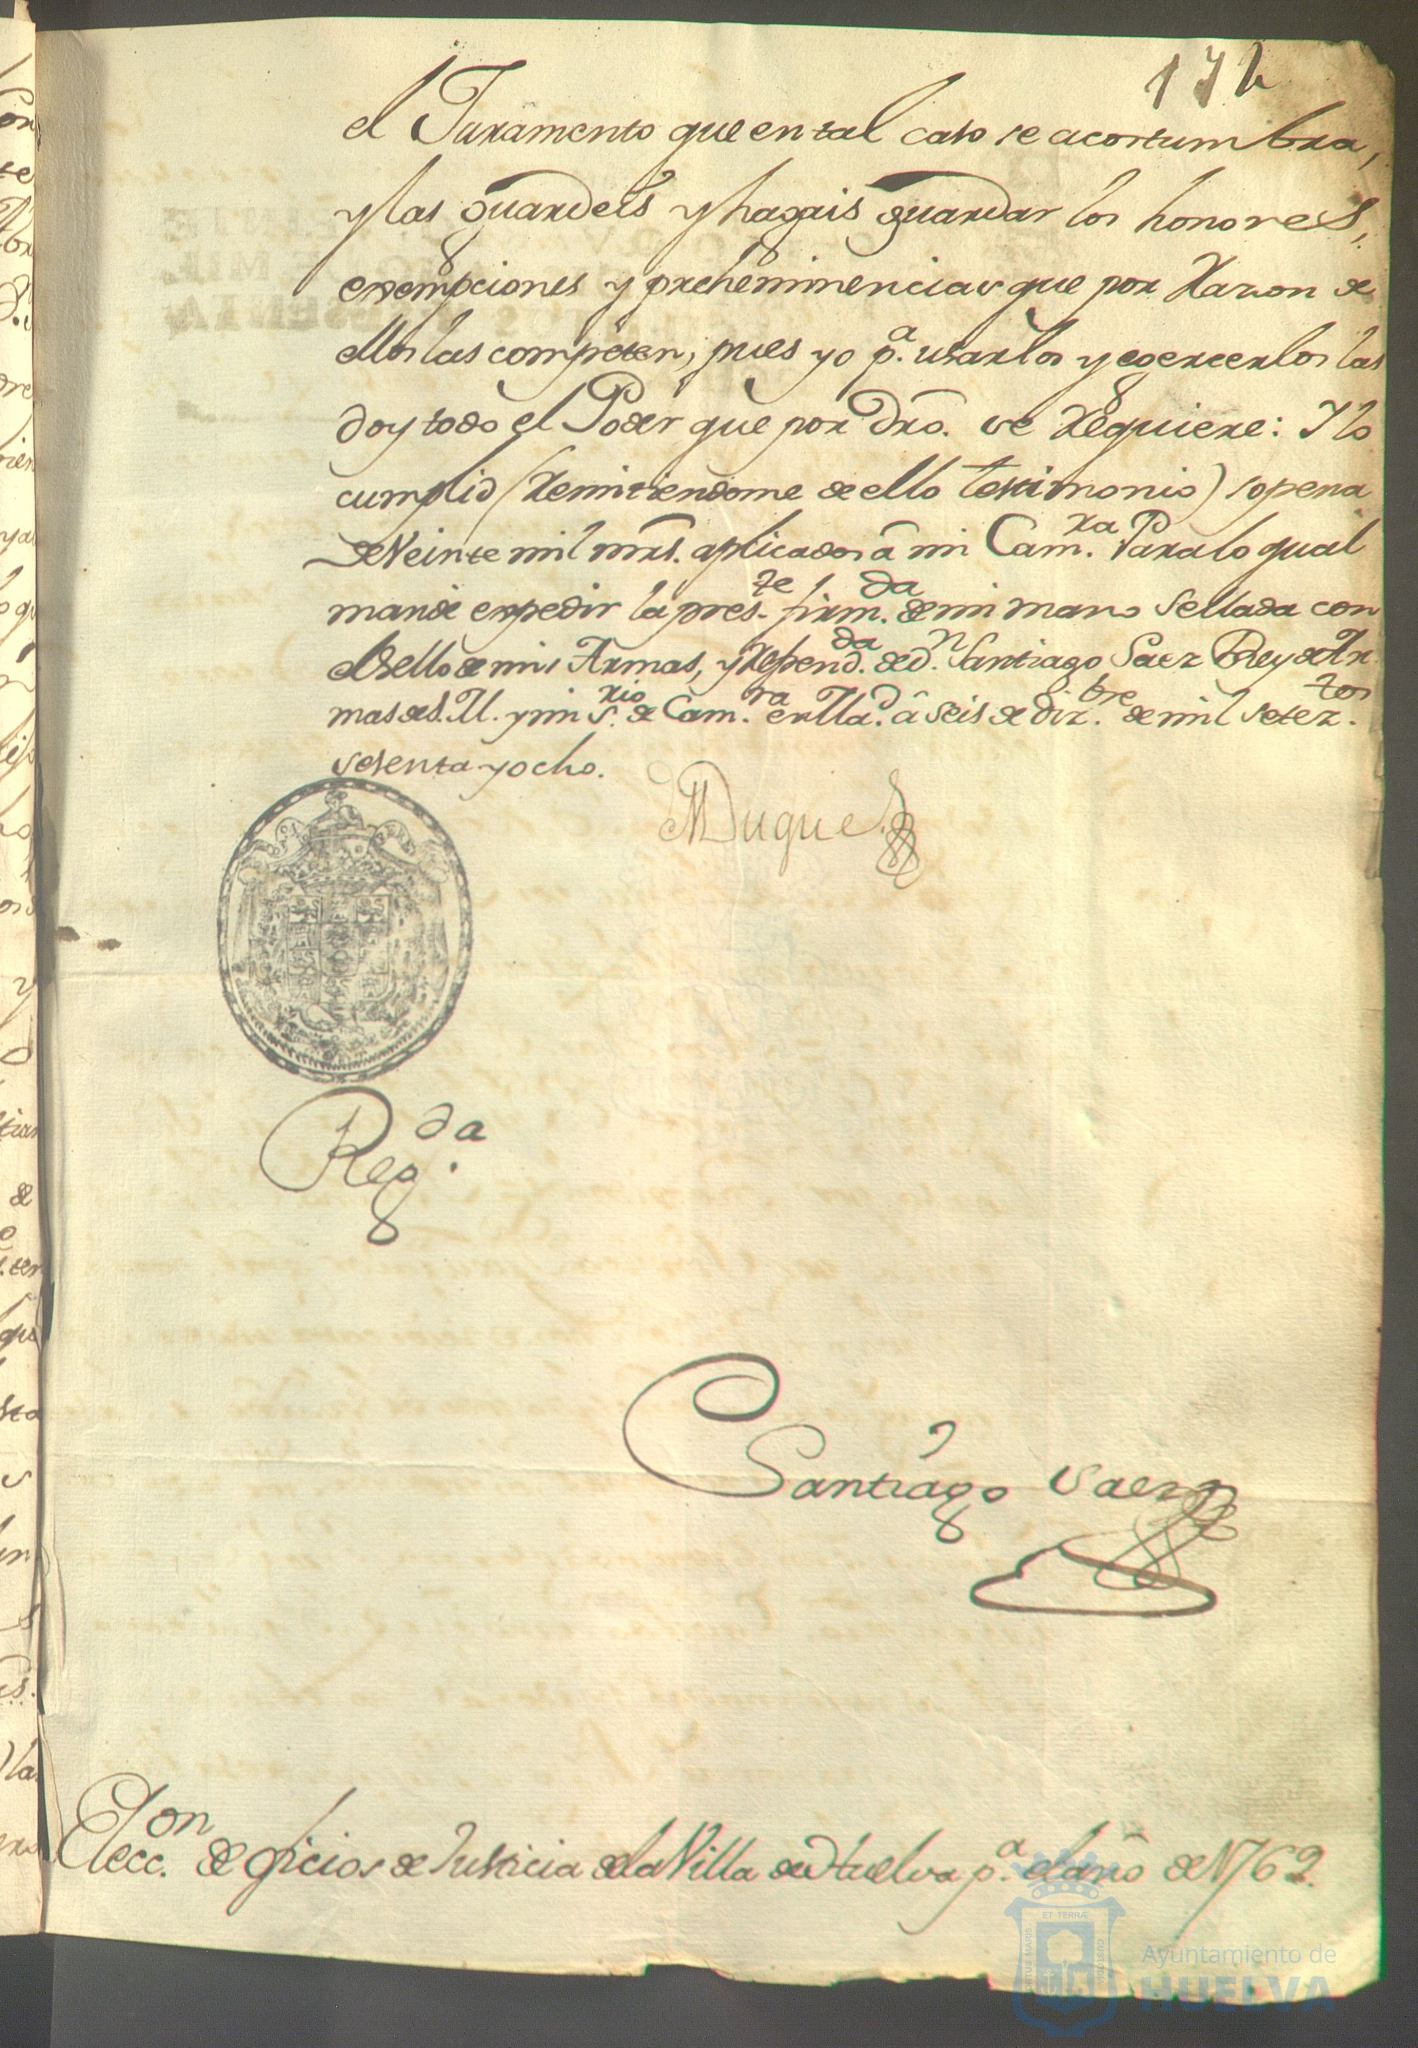 172
el Juramento que en tal caso se acostumbra,
y las guardeis y hagais guardar los honores,
exempciones y preheminencias que por razon de
ellos las competen, pues yo p.ª usarlos y egercerlos las
doy todo el Poder que por dro. se requiere: Y lo
cumplid (remitiendome de ello testimonio) sopena
de Veinte mil mrs. aplicados â mi Cam.ra Para lo qual
mandè expedir la pres.te firm.da de mi mano sellada con
el sello de mis Armas, y refrend.da de d.n Santiago Saez Rey de Ar
mas de S. M. y mi S.rio de Cam.ra en Mad.d â seis de Diz.bre de mil setez.tos
sesenta y ocho.
El Duque
Reg.da
Santiago Saez
Elecc.on de oficios de Justicia de la Villa de Huelva p.ª el año de 1769.
ET TERRÆ
Ayuntamiento de
HUELVA